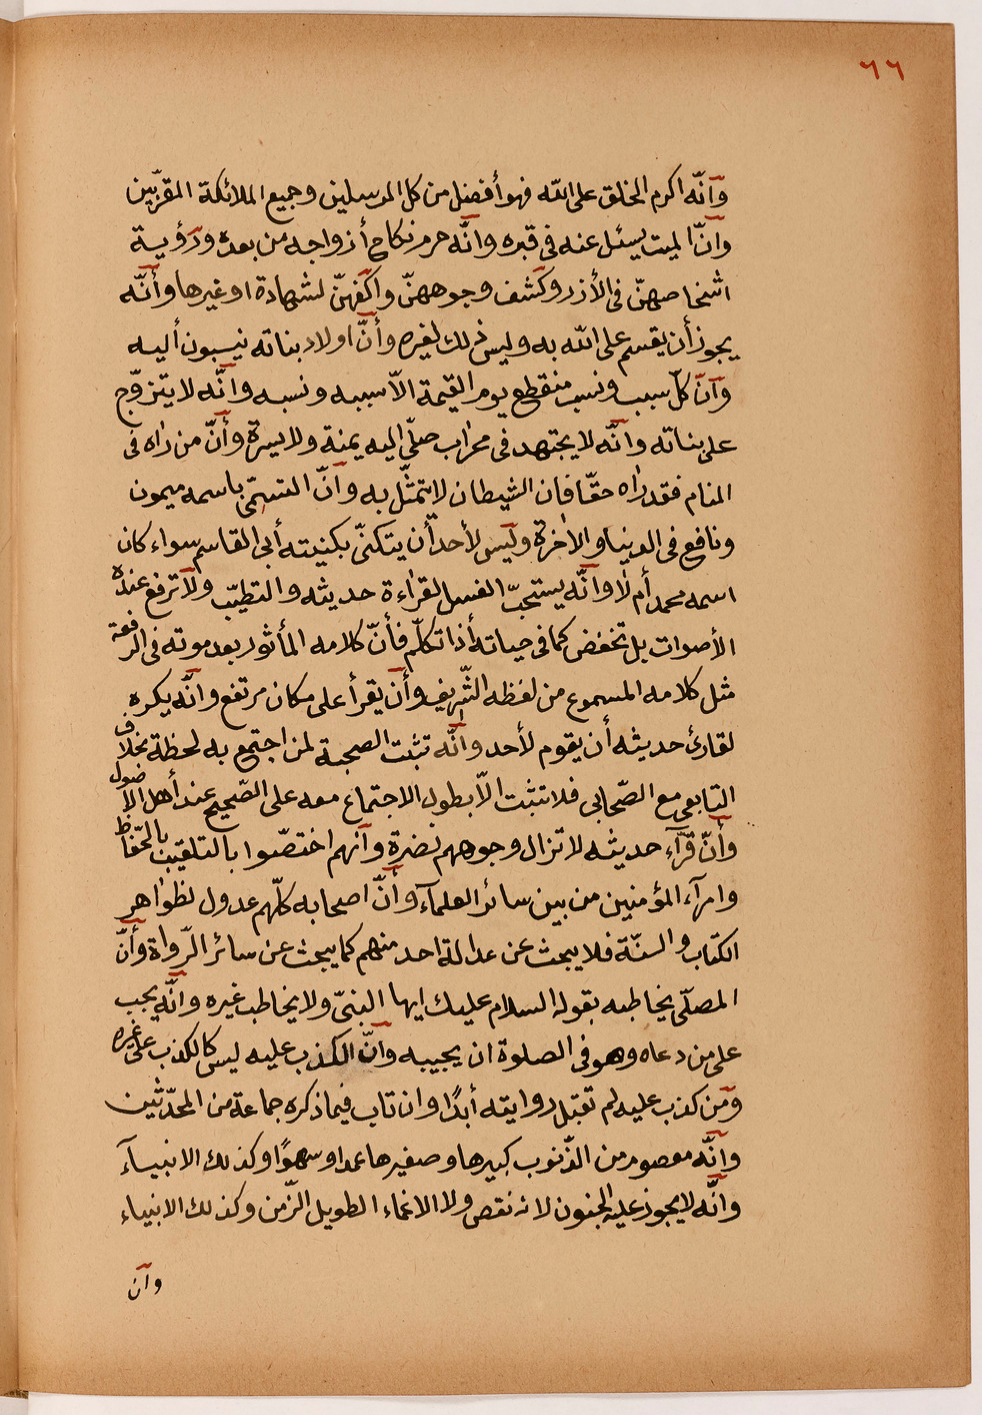 ٦٦
وأنّه اكرم الخلق على الله فهو أفضل من كل المرسلين وجميع الملائكة المقرّبين
وانّ الميت يسئل عنه فى قبره وانّه حرم نكاح أزواجه من بعده ورؤية
اشخاصهنّ فى الأزر وكشف وجوههنّ واكفهنّ لشهادة او غيرها وأنّه
يجوز أن يقسم على الله به وليس ذلك لغيره وأنّ اولاد بناته ينسبون أليه
وأنّ كلّ سبب ونسب منقطع يوم القيمة الاّ سببه ونسبه وانّه لا يتزوّج
على بناته وانّه لا يجتهد فى محراب صلّى اليه يمنة ولا يسرة وأنّ من رٰاه فى
المنام فقد رٰاه حقّا فان الشيطان لا يتمثّل به وانّ التسمّى باسمه ميمون
ونافع فى الدنيا والاخرة وليس لأحد أن يتكنّى بكنيته أبى القاسم سواء كان
اسمه محمد أم لا وانّه يستحبّ الغسل لقراءة حديثه والتطيّب ولا ترفع عنده
الأصوات بل تخفض كما فى حياته أذا تكلّم فأنّ كلامه المأثور بعد موته فى الرفعة
مثل كلامه المسموع من لفظه الشّريف وأن يقرأ على مكان مرتفع وانّه يكره
لقارئ حديثه أن يقوم لأحد وانّه تثبت الصحبة لمن اجتمع به لحظة بخلاف
التابعى مع الصّحابى فلا تثبت الاّ بطول الاجتماع معه على الصّحيح عند أهل الاصول
وأنّ قرّآء حديثه لا تزال وجوههم نضرة وأنهم اختصّوا بالتلقيب بالحّفاظ
وامرآء المؤمنين من بين سائر العلمآء وانّ اصحابه كلّهم عدول لظواهر
الكتاب والسنّة فلا يبحث عن عدالة احد منهم كما يبحث عن سائر الرّواة وأنّ
المصلّى يخاطبه بقوله السلام عليك ايها النبىّ ولا يخاطب غيره وانّه يجب
على من دعاه وهو فى الصلوة ان يجيبه وانّ الكذب عليه ليس كالكذب على غيره
ومن كذب عليه لم تقبل روايته أبدًا وان تاب فيما ذكره جماعة من المحدّثين
وانّه معصوم من الذّنوب كبيرها وصغيرها عمدا وسهوًا وكذلك الانبيآء
وانّه لا يجوز عليه الجنون لانه نقص ولا الاغماء الطويل الزّمن وكذلك الانبياء
وأن